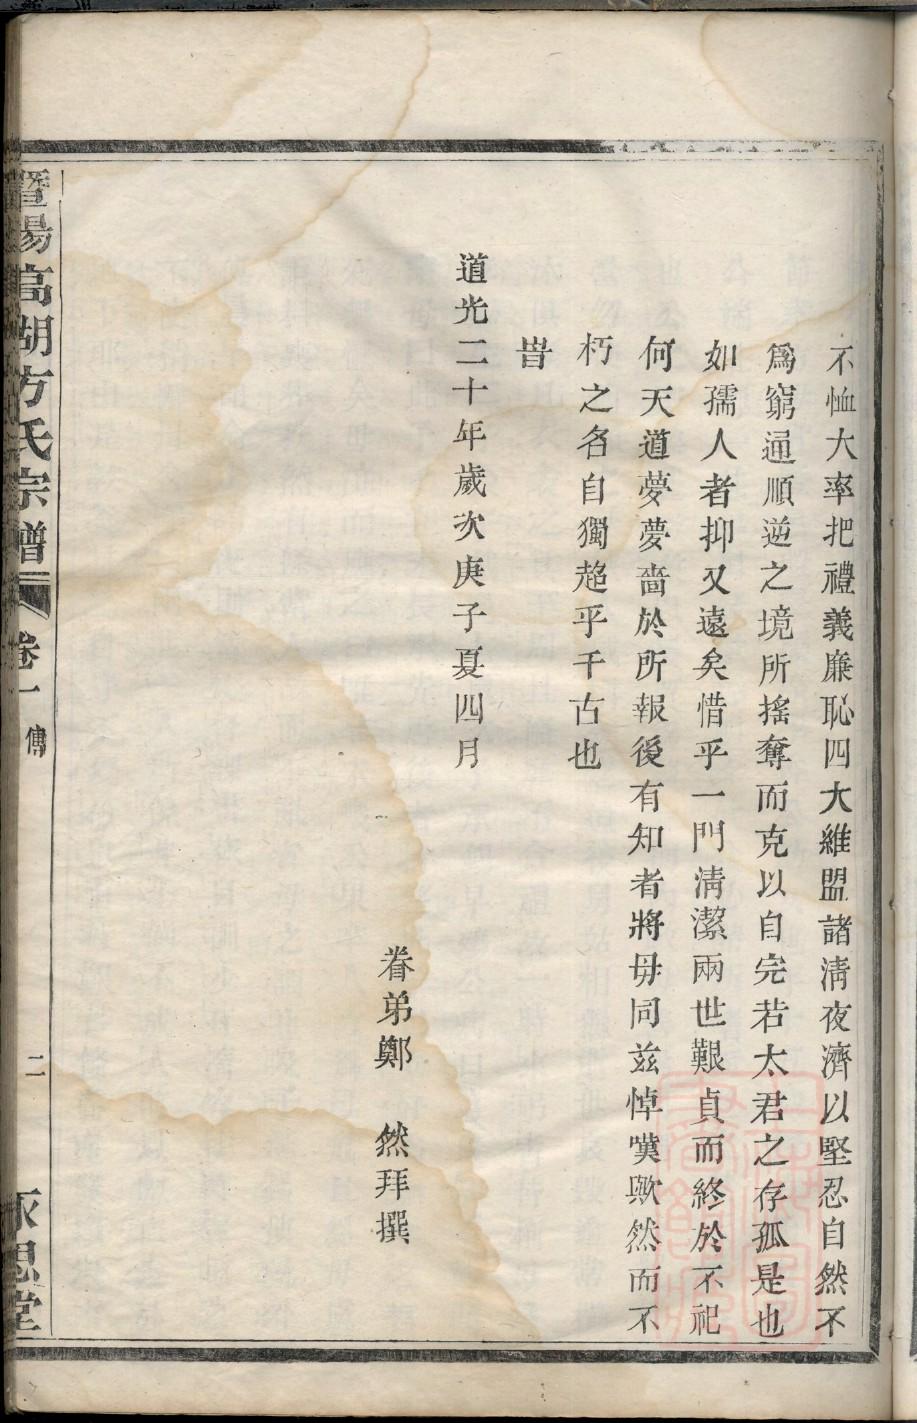 不恤大率把禮義廉恥四大維盟諸淸夜濟以堅忍自然不
爲窮通順逆之境所搖奪而克以自完若太君之存孤是也
如孺人者抑又遠矣惜乎一門淸潔兩世艱貞而終於不祀
何天道夢夢嗇於所報後有知者將毋同兹悼嘆歟然而不
朽之名自獨趂乎千古也
旹
道光二十年歲次庚子夏四月
眷弟鄭　然拜撰
暨陽高湖方氏宗譜　卷一　傳　二　永思堂